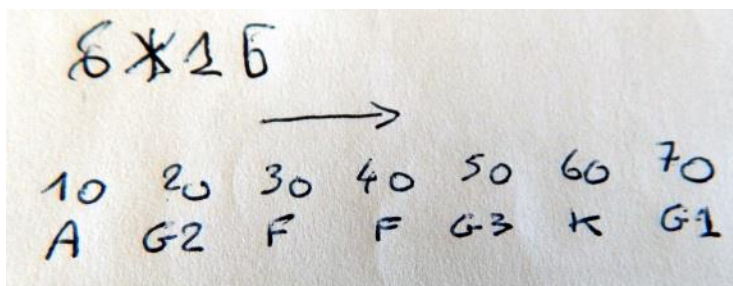 6Ж1Б
10 20 30 40 50 60 70
A G2 F F G3 K G1